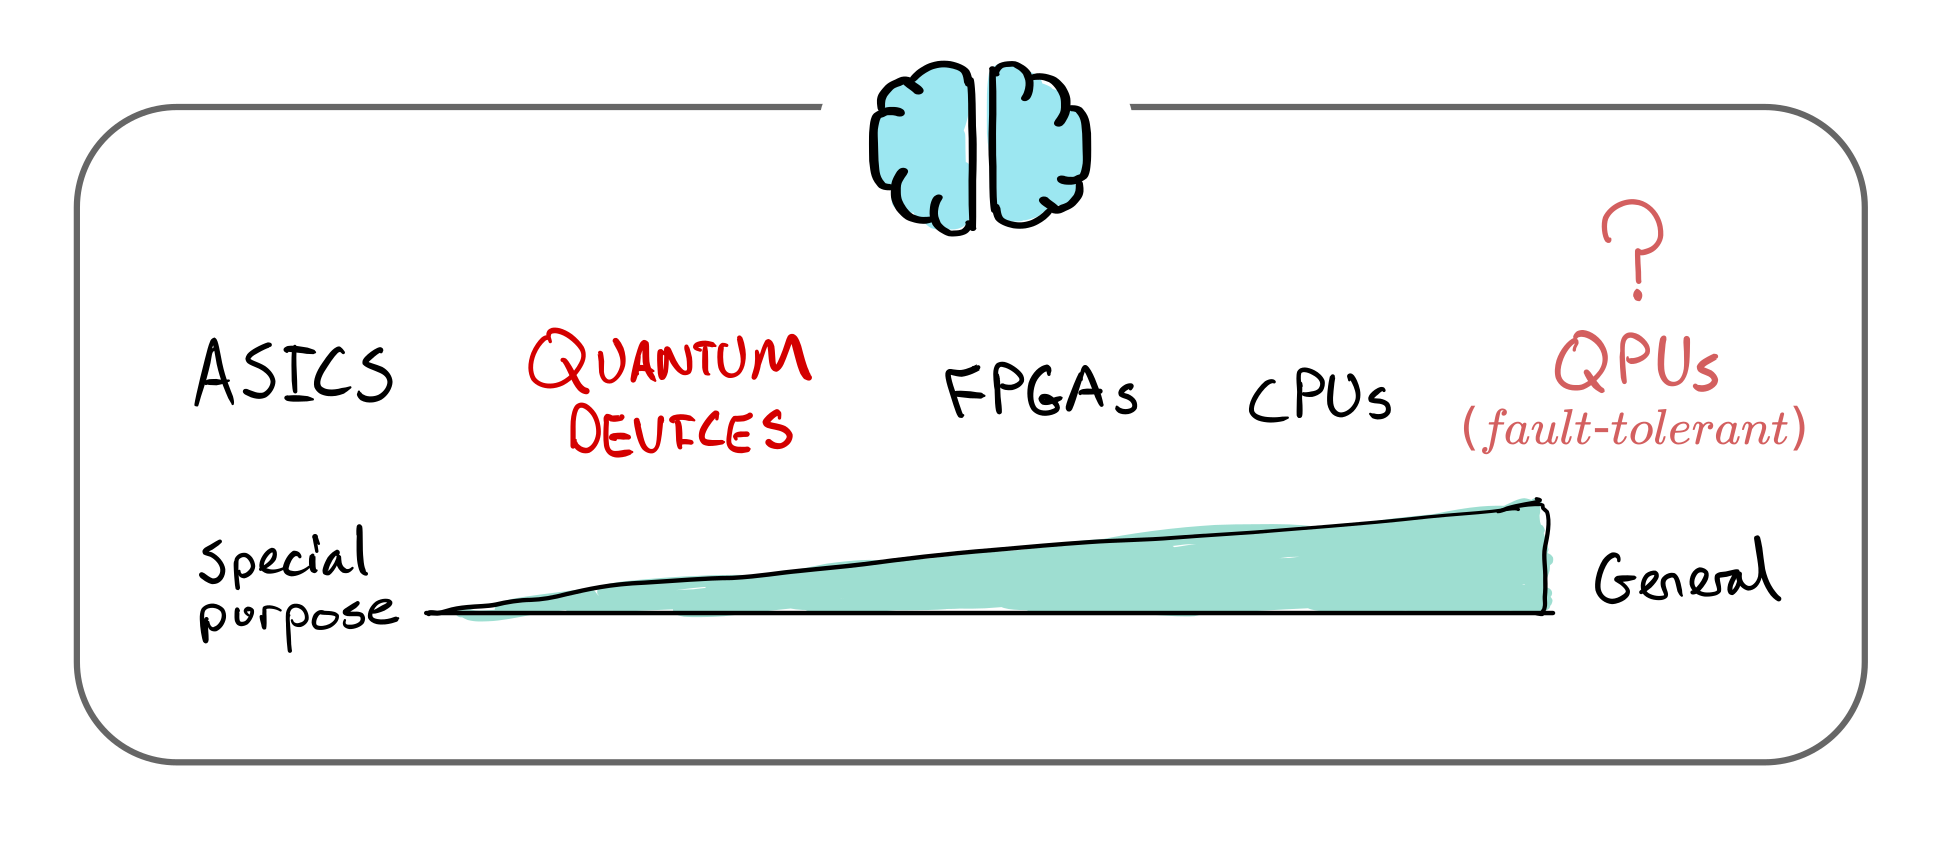 ?
ASICS
QUANTUM
DEVICES
FPGAs
CPUs
QPUs
(fault-tolerant)
Special
purpose
General